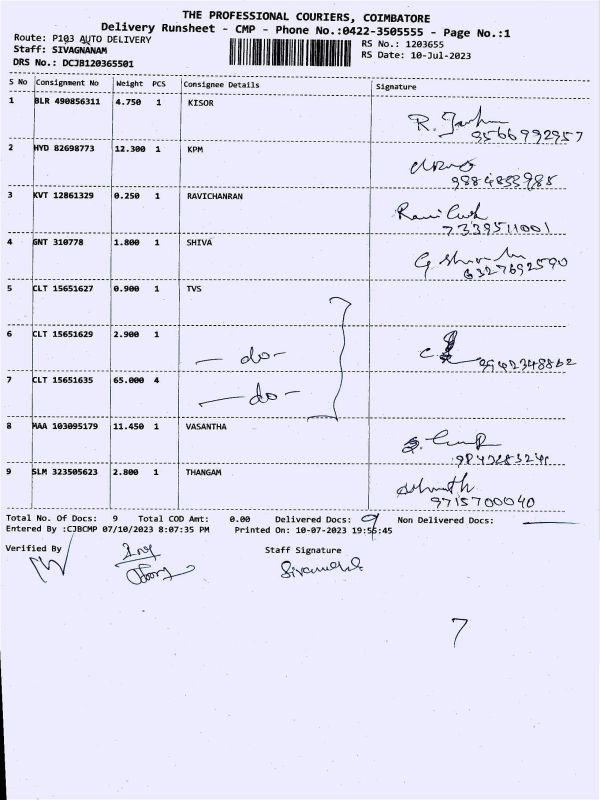 THE PROFESSIONAL COURIERS, COIMBATORE
Delivery Runsheet - CMP - Phone No.:0422-3505555 - Page No.:1
Route: P103 AUTO DELIVERY
RS No.: 1203655
Staff: SIVAGNANAM
RS Date: 10-Jul-2023
DRS No.: DCJB120365501
S No Consignment No Weight PCS Consignee Details Signature
1 BLR 490856311 4.750 1 KISOR
9566992957
2 HYD 82698773 12.300 1 KPM
3 KVT 12861329 0.250 1 RAVICHANRAN
7339511001
4 GNT 310778 1.800 1 SHIVA
6327692590
5 CLT 15651627 0.900 1 TVS
6 CLT 15651629 2.900 1
— do —
9942348862
7 CLT 15651635 65.000 4
— do —
8 MAA 103095179 11.450 1 VASANTHA
9 SLM 323505623 2.800 1 THANGAM
9715700040
Total No. Of Docs: 9 Total COD Amt: 0.00 Delivered Docs: 9 Non Delivered Docs:
Entered By :CJBCMP 07/10/2023 8:07:35 PM Printed On: 10-07-2023 19:56:45
Verified By Staff Signature
7